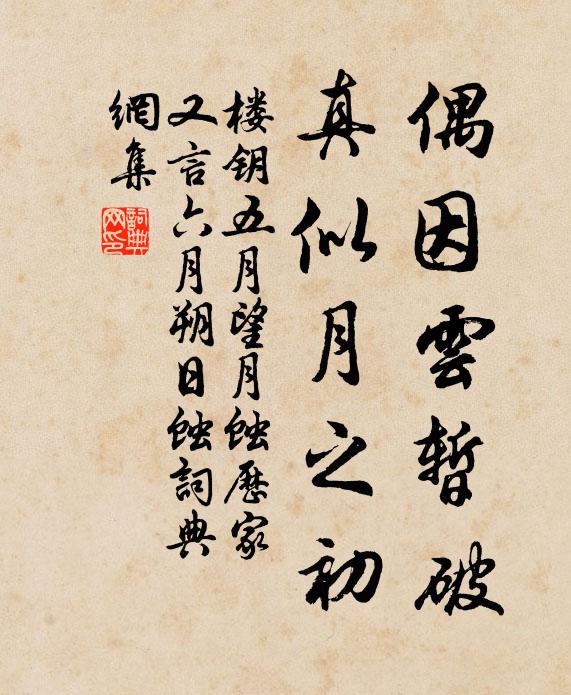 偶因雲暫破
真似月之初
楼钥五月望月蝕歷家
又言六月朔日蝕詞典
網集
詞典
网印